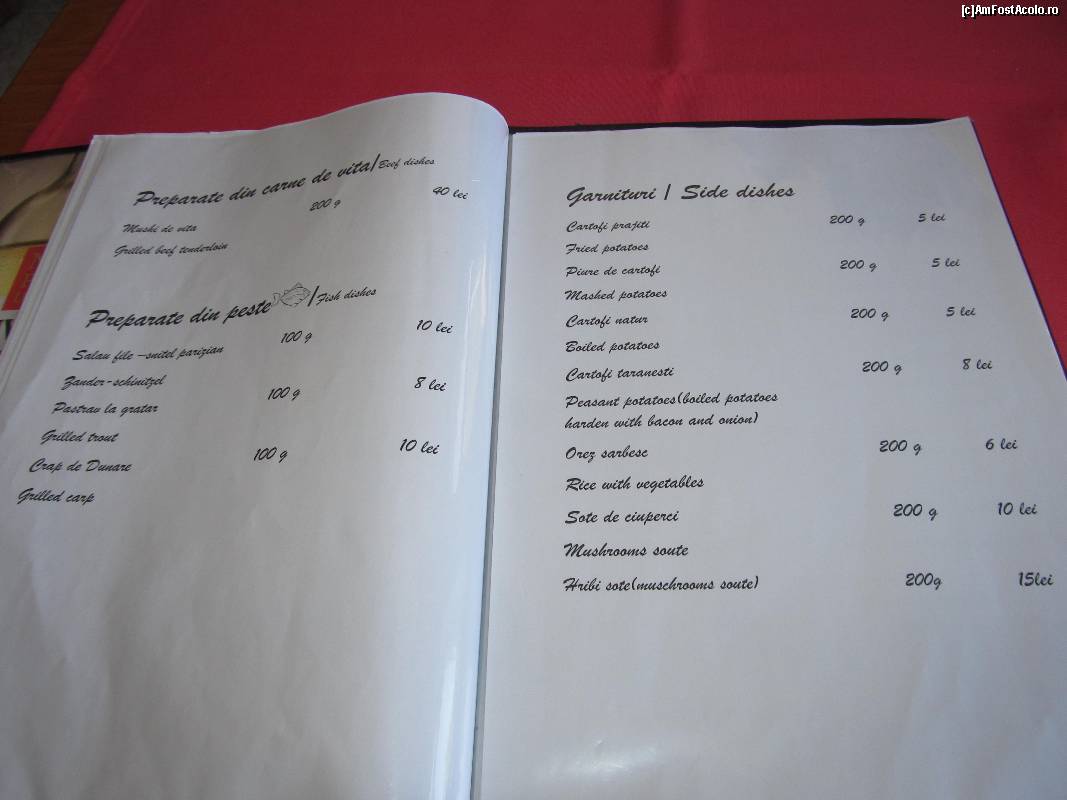 [c]AmFostAcolo.ro
Preparate din carne de vita/Beef dishes
200 g 40 lei
Mushi de vita
Grilled beef tenderloin
Preparate din peste /Fish dishes
Salau file -snitel parizian 100 g 10 lei
Zander-schinitzel
Pastrav la gratar 100 g 8 lei
Grilled trout
Crap de Dunare 100 g 10 lei
Grilled carp
Garnituri / Side dishes
Cartofi prajiti 200 g 5 lei
Fried potatoes
Piure de cartofi 200 g 5 lei
Mashed potatoes
Cartofi natur 200 g 5 lei
Boiled potatoes
Cartofi taranesti 200 g 8 lei
Peasant potatoes(boiled potatoes
harden with bacon and onion)
Orez sarbesc 200 g 6 lei
Rice with vegetables
Sote de ciuperci 200 g 10 lei
Mushrooms soute
Hribi sote(muschrooms soute) 200g 15lei